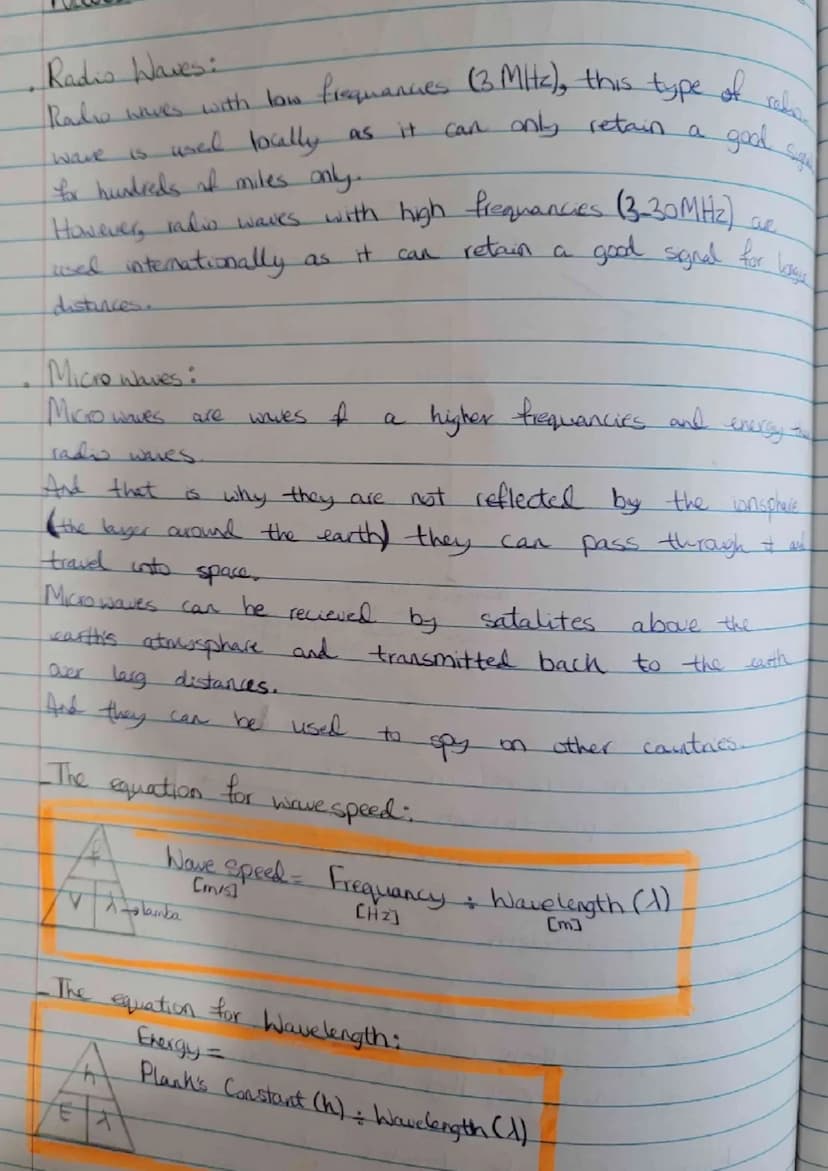 Radio Waves:
Radio waves with low frequancies (3 MHz), this type of
wave is used locally as it can only retain a good
for hundreds of miles only.
However, radio waves with high frequancies (3-30MHz) are
used internationally as it can retain a good signal for
distances.
Micro waves:
Micro waves are waves of a higher frequancies and energy
radio waves.
And that is why they are not reflected by the
(the layer around the earth) they can pass through it and
travel into space.
Microwaves can be recieved by satalites above the
earth's atmosphare and transmitted back to the earth
over larg distances.
And they can be used to spy on other countries.
- The equation for wave speed:
f
V λ → lamba
Wave speed = Frequancy ÷ Wavelength (λ)
[m/s] [Hz] [m]
- The equation for Wavelength:
Energy =
h
Plank's Constant (h) ÷ Wavelength (λ)
E λ